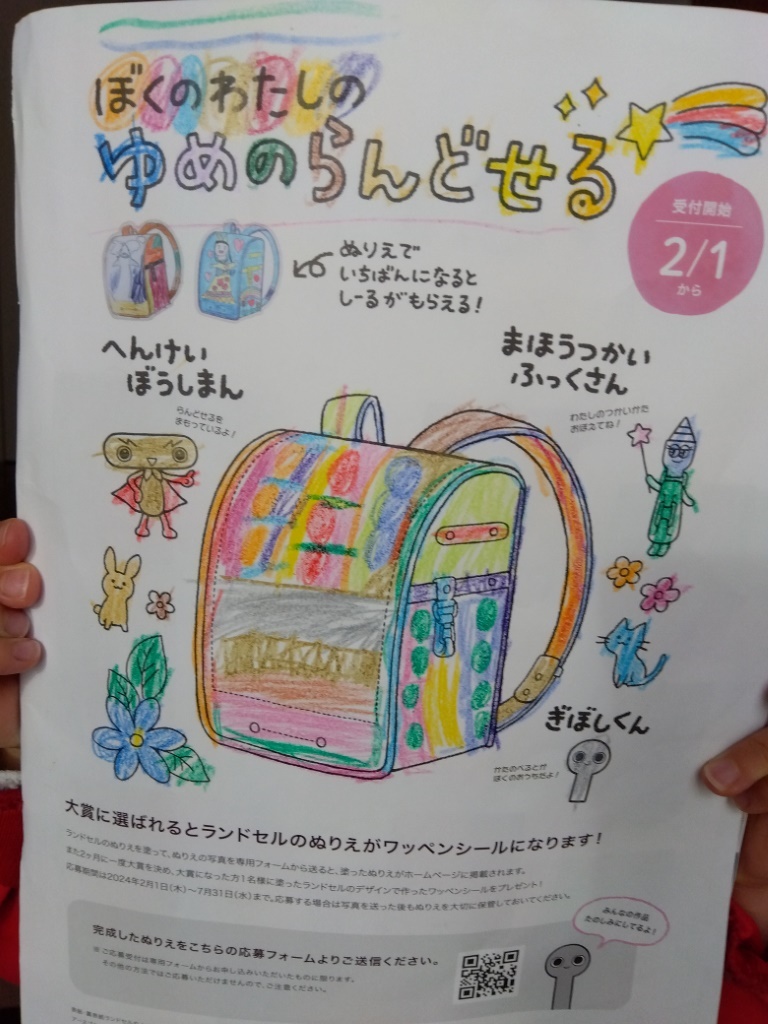 ぼくのわたしの
ゆめのらんどせる
受付開始
2/1
から
ぬりえで
いちばんになると
しーるがもらえる!
へんけい
ぼうしまん
らんどせるを
まもっているよ!
まほうつかい
ふっくさん
わたしのつかいかた
おぼえてね!
ぎぼしくん
かたのべるとが
ぼくのおうちだよ!
大賞に選ばれるとランドセルのぬりえがワッペンシールになります!
ランドセルのぬりえを塗って、ぬりえの写真を専用フォームから送ると、塗ったぬりえがホームページに掲載されます。
また2ヶ月に一度大賞を決め、大賞になった方1名様に塗ったランドセルのデザインで作ったワッペンシールをプレゼント!
応募期間は2024年2月1日(木)〜7月31日(水)まで。応募する場合は写真を送った後もぬりえを大切に保管しておいてください。
みんなの作品
たのしみにしてるよ!
完成したぬりえをこちらの応募フォームよりご送信ください。
※ご応募受付は専用フォームからお申し込みいただいたものに限ります。
その他の方法ではご応募いただけませんので、ご注意ください。